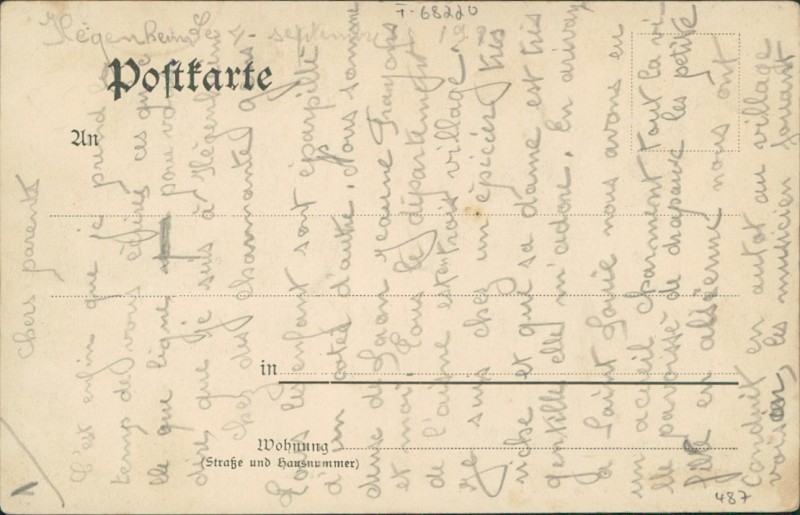 T-68220
Hégenheim le 4 septembre 19
Postkarte
An
in
Wohnung
(Straße und Hausnummer)
487
Chers parents
C'est enfin que je prend le
temp de vous écrires ces quel
le que ligne pour vous
dire que je suis à Hégenheim
chez des charmantes gens
Tous les enfant sont éparpillé
d'un cotés d'autre. Nous somme
de Laon
et moi Tous le département
de l'aisne est en trois village.
Je suis chez un épicier très
riche et que sa dame est très
gentille elle m'adore. En arivan
a Saint Louie nous avons eu
un acueil charmant tout la vi
lle pavoisé de drapaux les petite
fille en alsacienne nous ont
conduit en autot au village
voisien, les musicien jouant